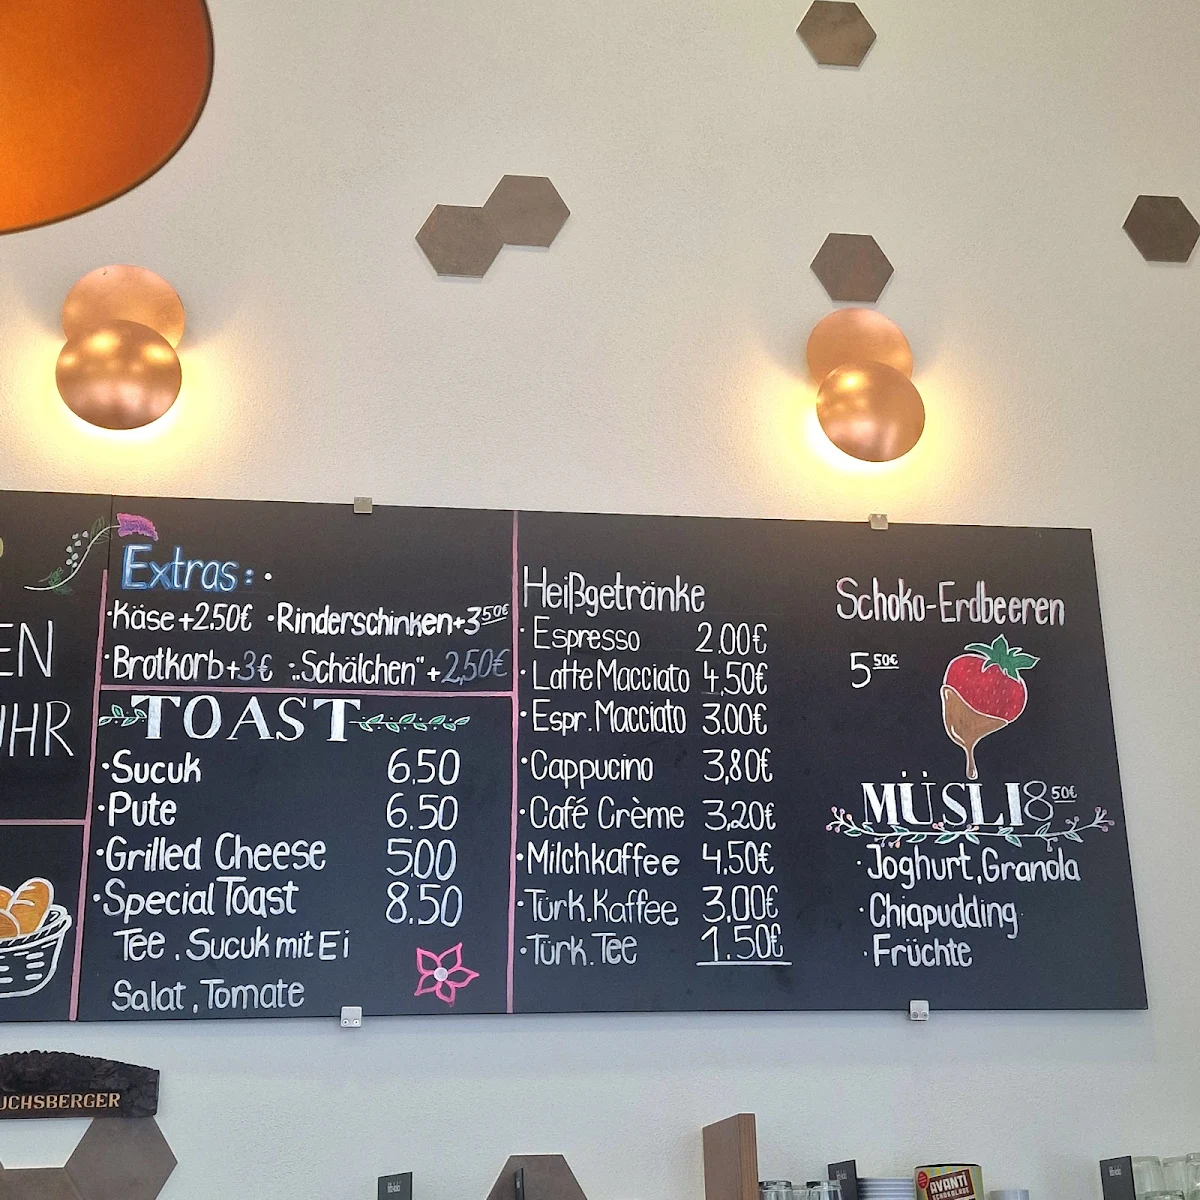 EN
UHR
Extras:
·Käse+2.50€ ·Rinderschinken+3 50€
·Brotkorb+3€ "Schälchen"+2,50€
TOAST
·Sucuk 6.50
·Pute 6.50
·Grilled Cheese 5.00
·Special Toast 8.50
Tee, Sucuk mit Ei
Salat, Tomate
Heißgetränke
·Espresso 2.00€
·Latte Macciato 4,50€
·Espr. Macciato 3.00€
·Cappucino 3,80€
·Café Crème 3,20€
·Milchkaffee 4.50€
·Türk. Kaffee 3.00€
·Türk. Tee 1.50€
Schoko-Erdbeeren
5 50€
MÜSLI 8 50€
·Joghurt, Granola
·Chiapudding
·Früchte
UCHSBERGER
AVANTI